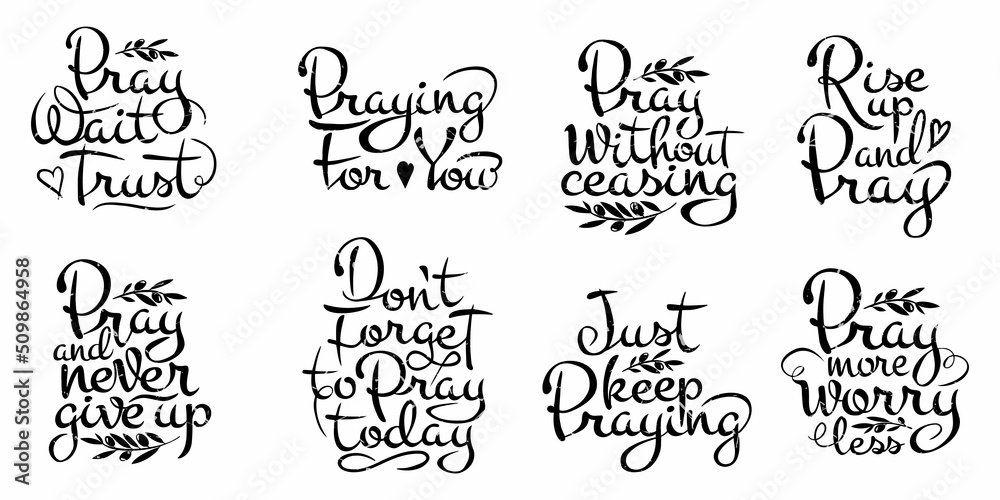 Pray
Wait
Trust
Praying
For You
Pray
Without
ceasing
Rise
up
and
Pray
Pray
and
never
give up
Don't
Forget
to Pray
today
Just
keep
Praying
Pray
more
Worry
less
Adobe Stock | #509864958